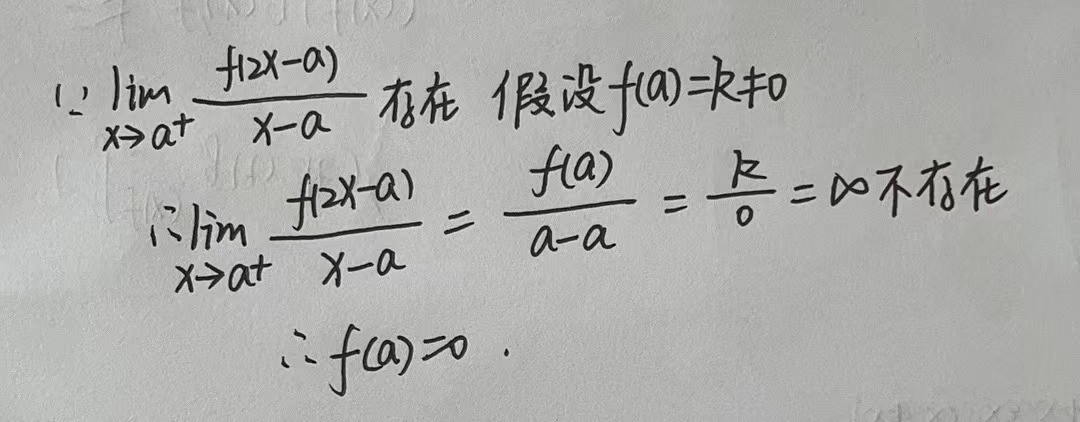 (1) lim_{x→a⁺} f(2x-a)/(x-a) 存在 假设 f(a)=k≠0
∴ lim_{x→a⁺} f(2x-a)/(x-a) = f(a)/(a-a) = k/0 = ∞ 不存在
∴ f(a)=0 .